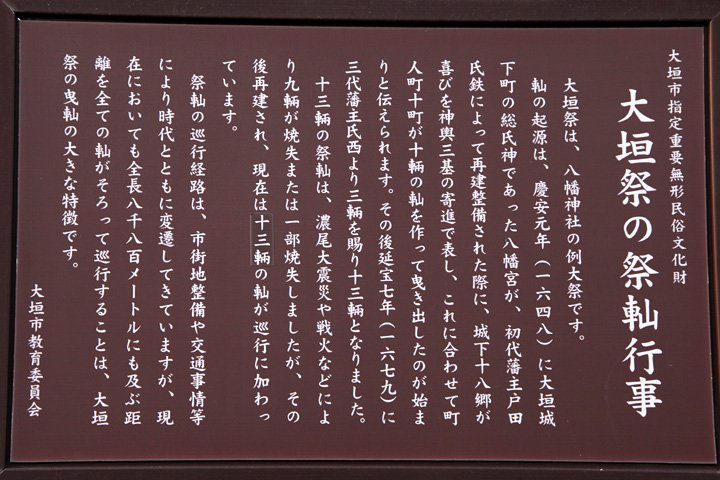 大垣市指定重要無形民俗文化財
大垣祭の祭軕行事
大垣祭は、八幡神社の例大祭です。
軕の起源は、慶安元年(一六四八)に大垣城
下町の総氏神であった八幡宮が、初代藩主戸田
氏鉄によって再建整備された際に、城下十八郷が
喜びを神輿三基の寄進で表し、これに合わせて町
人町十町が十輌の軕を作って曳き出したのが始ま
りと伝えられます。その後延宝七年(一六七九)に
三代藩主氏西より三輌を賜り十三輌となりました。
十三輌の祭軕は、濃尾大震災や戦火などによ
り九輌が焼失または一部焼失しましたが、その
後再建され、現在は十三輌の軕が巡行に加わっ
ています。
祭軕の巡行経路は、市街地整備や交通事情等
により時代とともに変遷してきていますが、現
在においても全長八千八百メートルにも及ぶ距
離を全ての軕がそろって巡行することは、大垣
祭の曳軕の大きな特徴です。
大垣市教育委員会